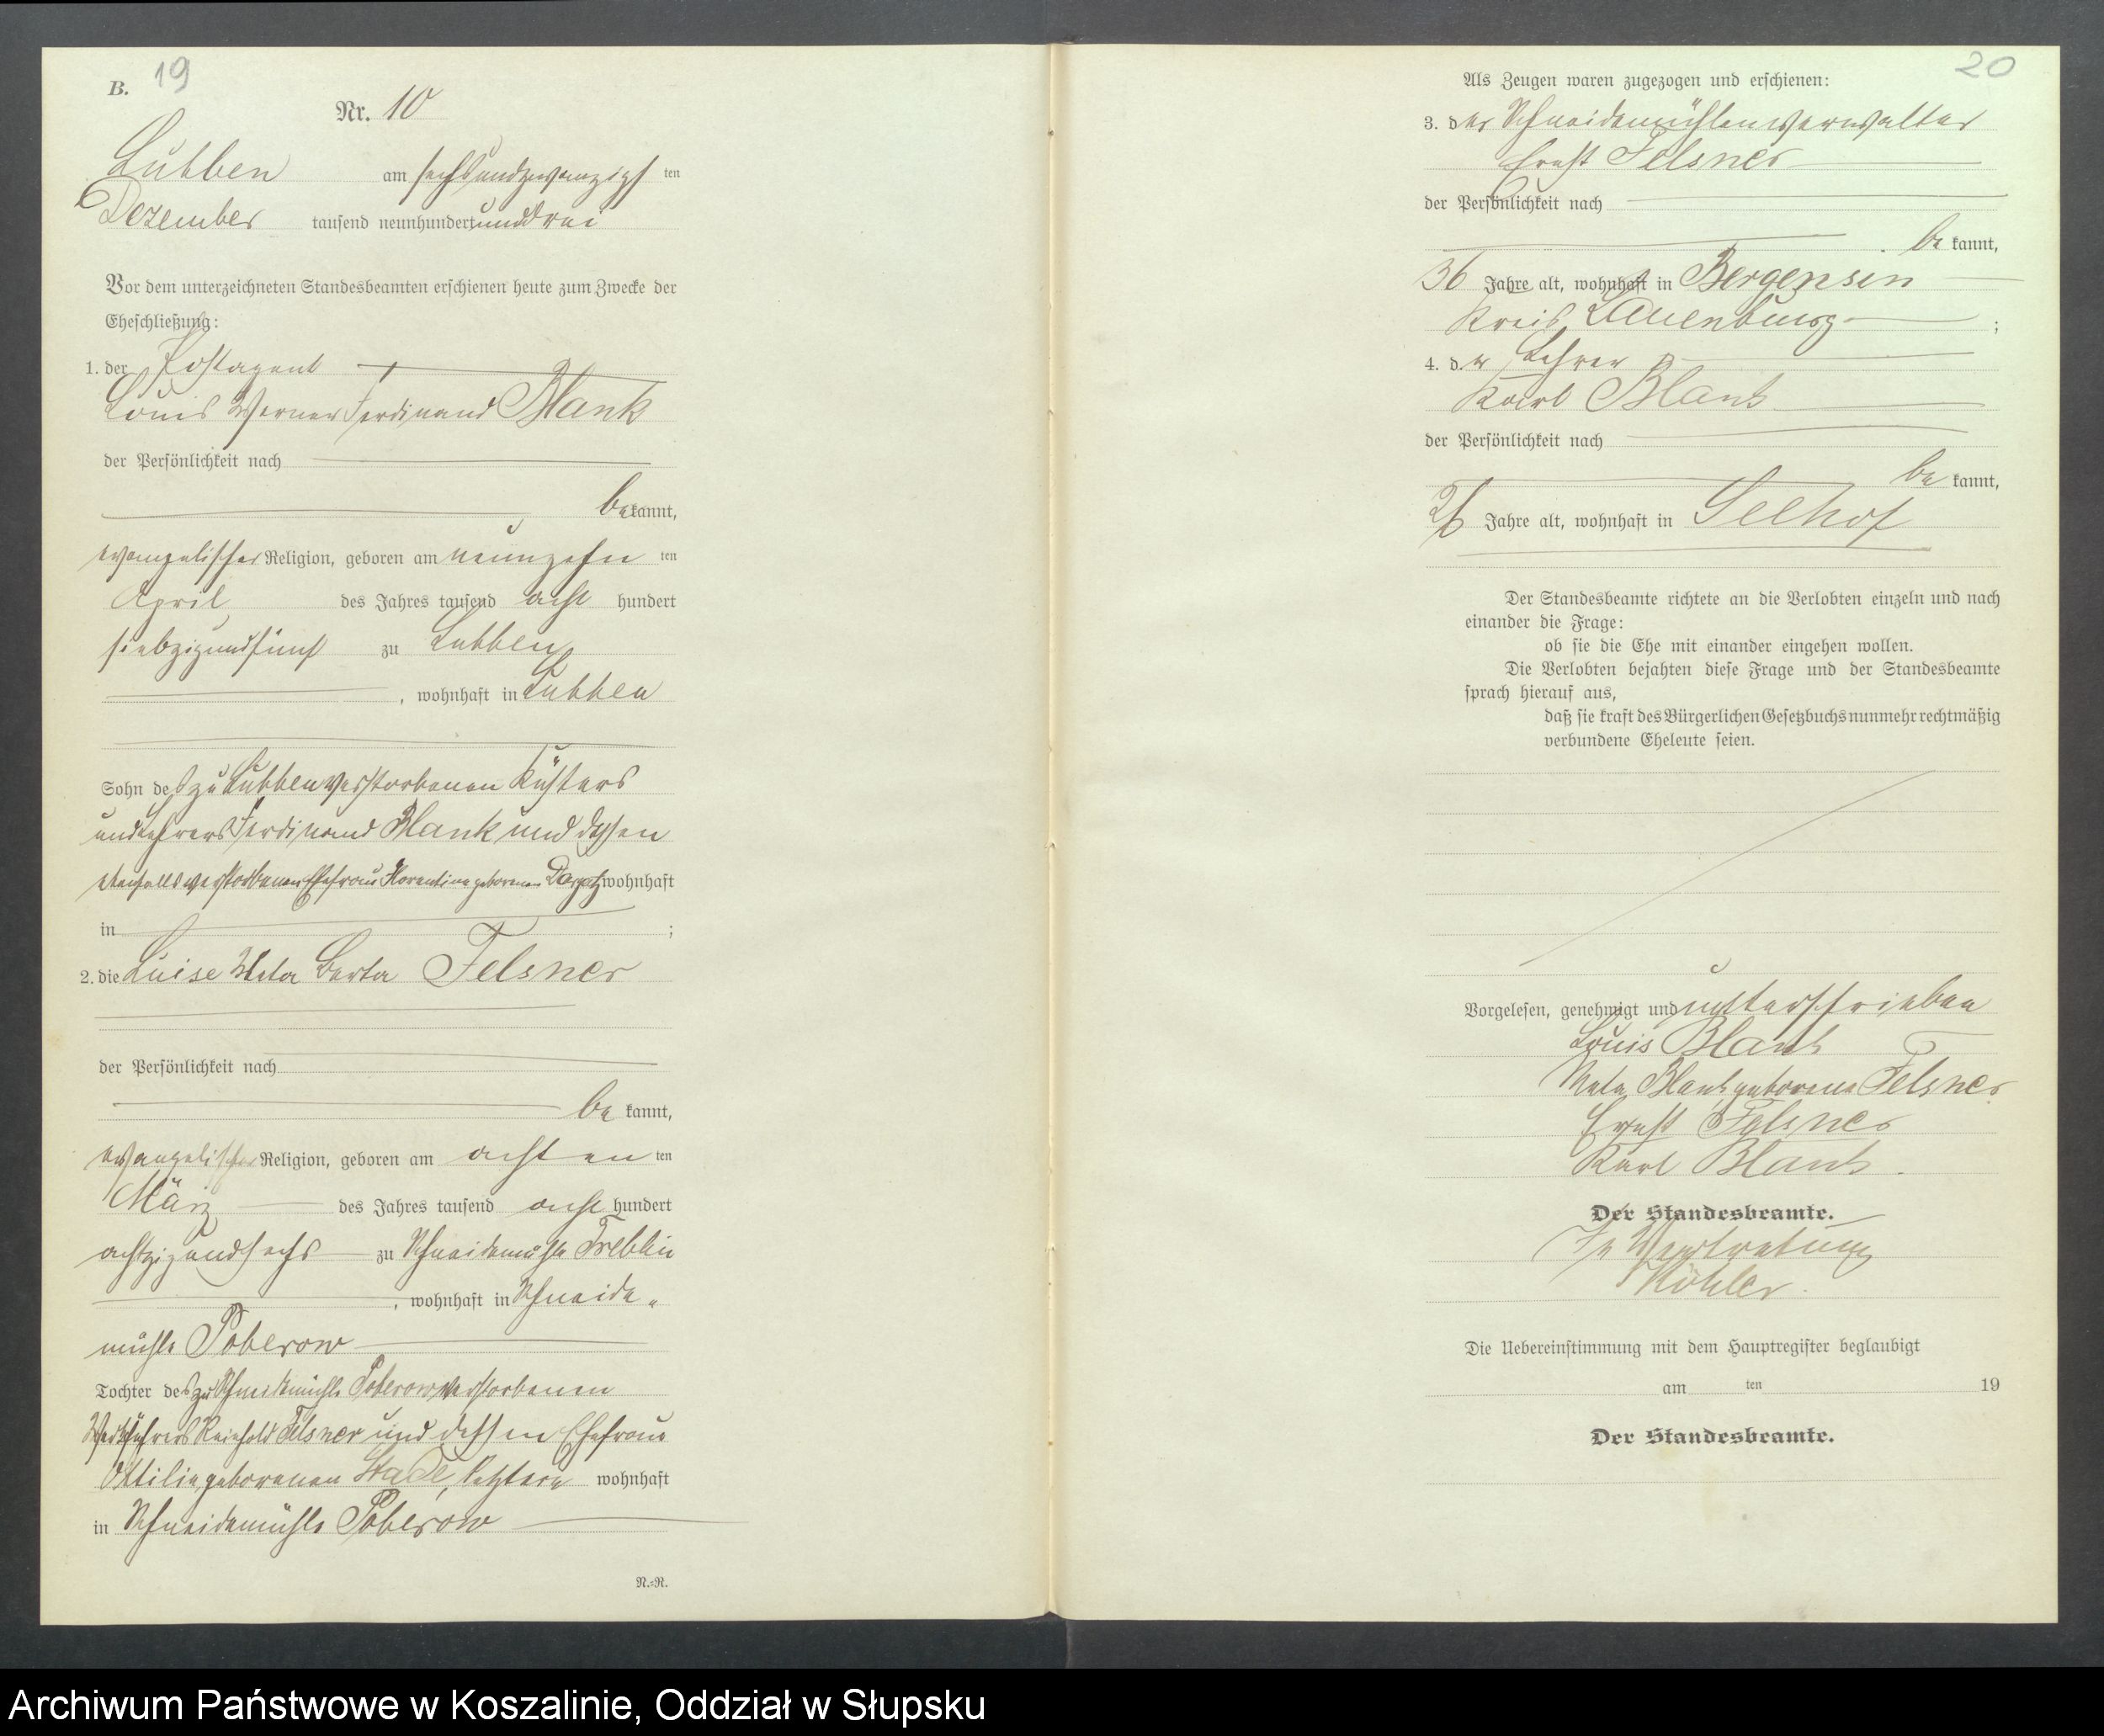 B. 19
Nr. 10
Lubben am sechsundzwanzigsten
Dezember tausend neunhundertunddrei
Vor dem unterzeichneten Standesbeamten erschienen heute zum Zwecke der
Eheschließung:
1. der Postagent
Louis Werner Ferdinand Blank
der Persönlichkeit nach
bekannt,
evangelischer Religion, geboren am neunzehnten
April des Jahres tausend acht hundert
siebzigundfünf zu Lubben
, wohnhaft in Lubben
Sohn des zu Lubben verstorbenen Küsters
und Lehrers Ferdinand Blank und dessen
ebenfalls verstorbenen Ehefrau Florentine geborenen wohnhaft
in ;
2. die Luise Meta Berta Felsner
der Persönlichkeit nach
bekannt,
evangelischer Religion, geboren am achten ten
März des Jahres tausend acht hundert
achtzigundsechs zu Schneidemühle Treblin
, wohnhaft in Schneide„
mühle Poberow
Tochter des zu Schneidemühle Poberow verstorbenen
Werkführers Reinhold Felsner und dessen Ehefrau
Ottilie, geborenen Stade, letztere wohnhaft
in Schneidemühle Poberow
N.=N.
20
Als Zeugen waren zugezogen und erschienen:
3. der Schneidemühlenverwalter
Ernst Felsner
der Persönlichkeit nach
bekannt,
36 Jahre alt, wohnhaft in Bergensin
Kreis Lauenburg ;
4. der Lehrer
Karl Blank
der Persönlichkeit nach
bekannt,
26 Jahre alt, wohnhaft in Seehof
Der Standesbeamte richtete an die Verlobten einzeln und nach
einander die Frage:
ob sie die Ehe mit einander eingehen wollen.
Die Verlobten bejahten diese Frage und der Standesbeamte
sprach hierauf aus,
daß sie kraft des Bürgerlichen Gesetzbuchs nunmehr rechtmäßig
verbundene Eheleute seien.
Vorgelesen, genehmigt und unterschrieben
Louis Blank
Meta Blank geborene Felsner
Ernst Felsner
Karl Blank.
Der Standesbeamte.
In Vertretung
Köhler.
Die Uebereinstimmung mit dem Hauptregister beglaubigt
am ten 19
Der Standesbeamte.
Archiwum Państwowe w Koszalinie, Oddział w Słupsku